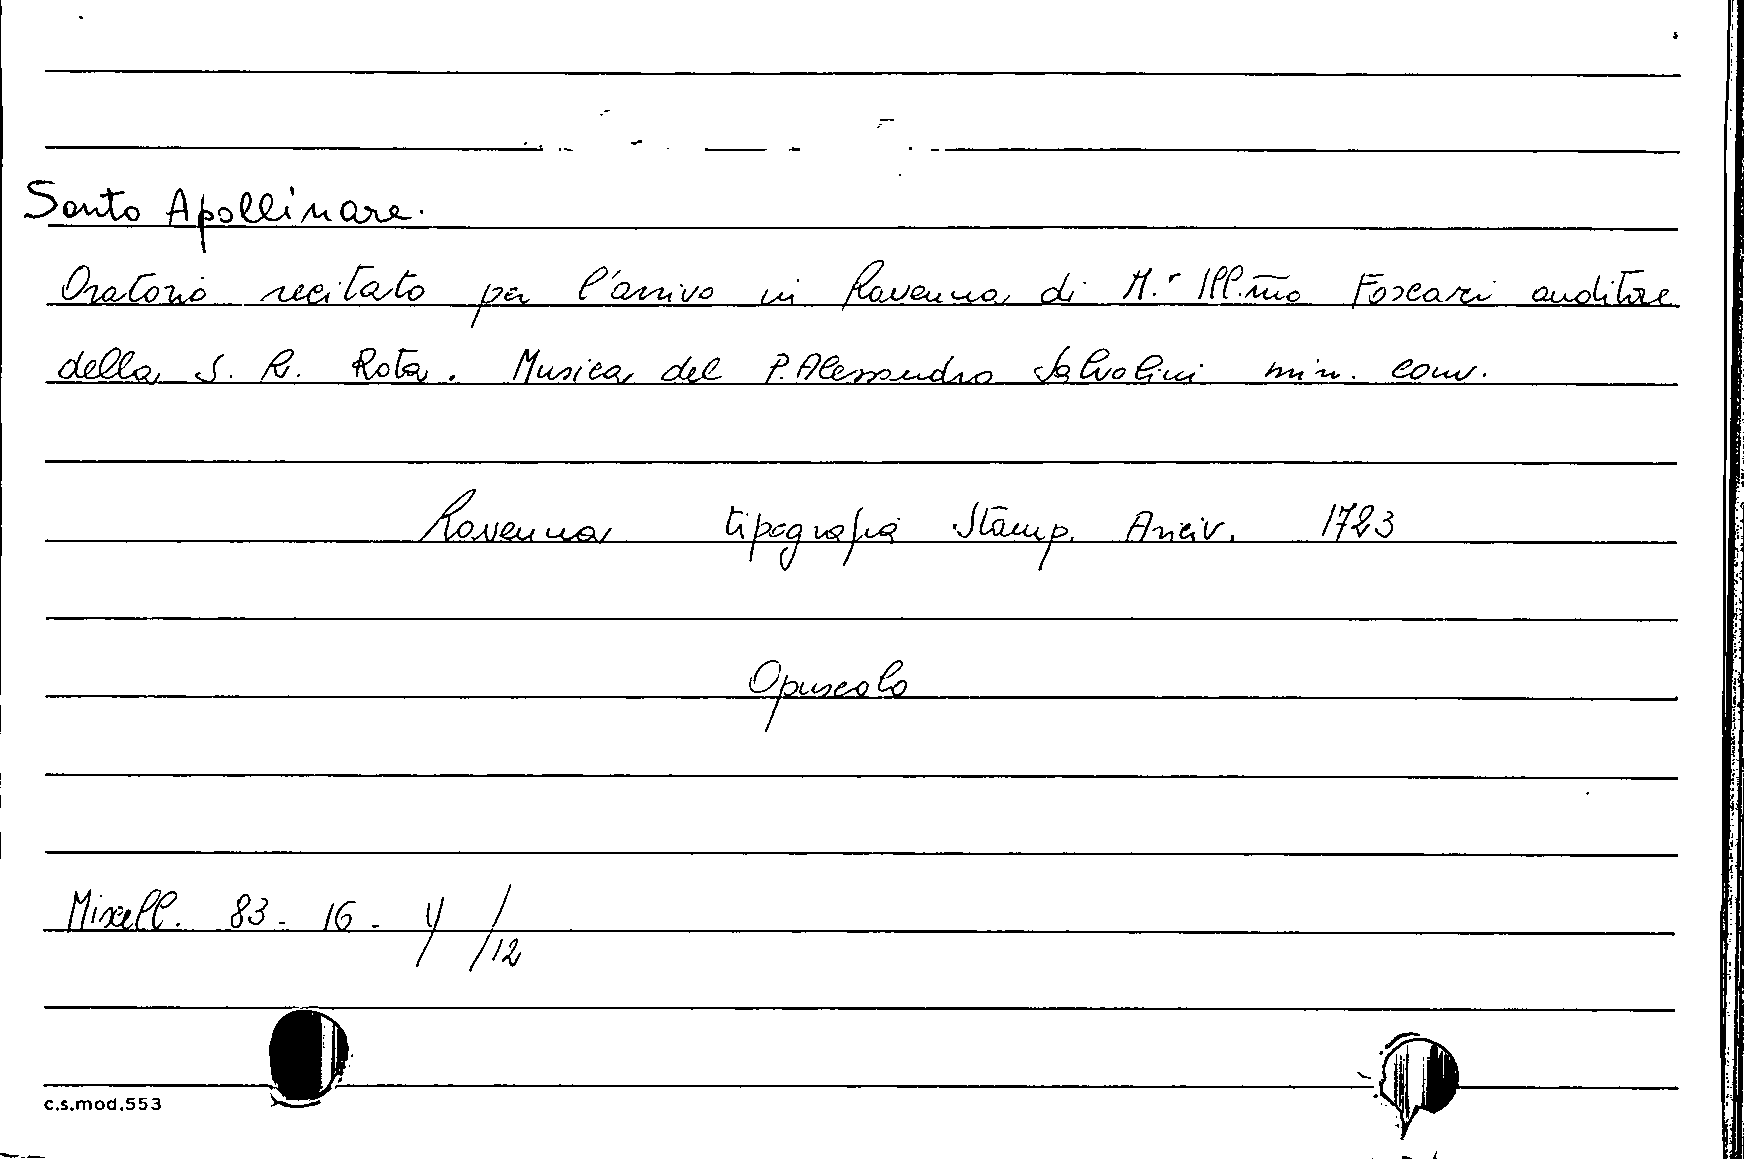 Santo Apollinare.
Oratorio recitato per l'arrivo in Ravenna di M.r Ill.mo Foscari auditore
della S. R. Rota. Musica del P. Alessandro Salvolini min. conv.
Ravenna tipografia Stamp. Arciv. 1723
Opuscolo
Miscell. 83 - 16 - Y /12
c.s.mod.553